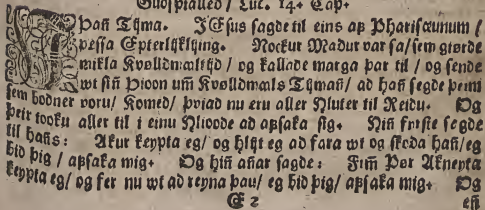 Guðspialleð / Luc. 14. Cap.
Þañ Tijma. JEsus sagde til eins aþ Phariscæunum /
þessa Epterlijkijng. Nockur Madur var sa / sem giørde
mikla Kvølldmaltijd / og kallade marga þar til / og sende
wt siñ Þioon um Kvølldmaals Tijmañ / ad hañ segde þeim
sem bodner voru / Komed / þviad nu eru aller Hluter til Reidu. Og
þeir tooku aller til i einu Hlioode ad aþsaka sig. Hiñ fyrste segde
til hañs: Akur keypta eg / og hlijt eg ad fara wt og skoda hañ / eg
bid þig / aþsaka mig. Og hiñ añar sagde: Fim Pør Akneyta
keypta eg / og fer nu wt ad reyna þau / eg bid þig / aþsaka mig. Og
E 2
eñ